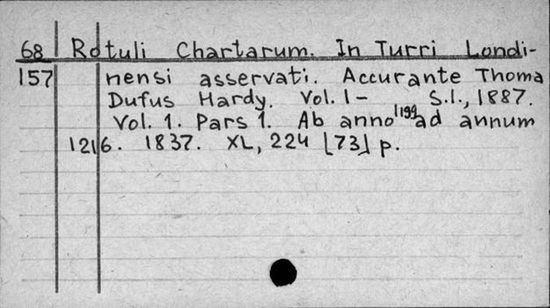 68 Rotuli Chartarum. In Turri Londi-
157 nensi asservati. Accurante Thoma
Dufus Hardy. Vol. 1- S.l., 1887.
Vol. 1. Pars 1. Ab anno 1199 ad annum
1216. 1837. XL, 224 [73] p.